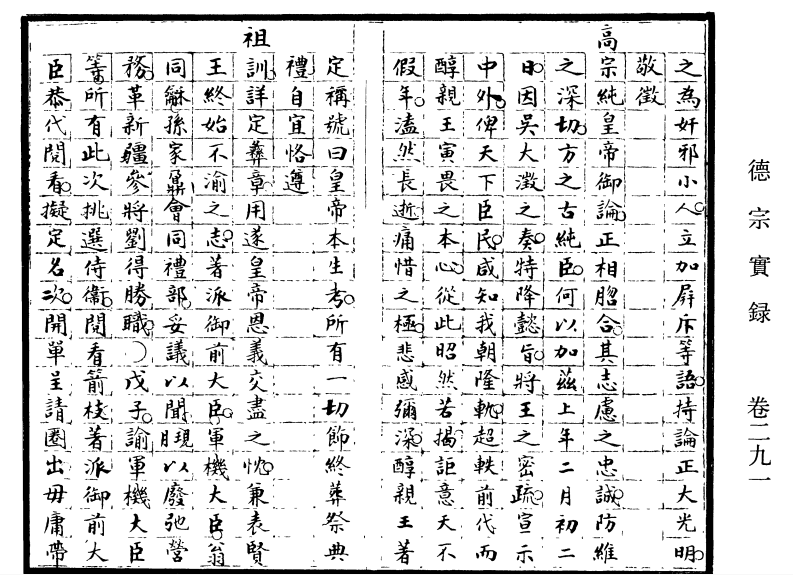 德宗實録 卷二九一
之為奸邪小人。立加屏斥等語。持論正大光明。
敬徵
高宗純皇帝御論。正相脗合。其志慮之忠誠。防維
之深切。方之古純臣。何以加茲。上年二月初二
日。因吳大澂之奏。特降懿旨。將王之密疏。宣示
中外。俾天下臣民。咸知我朝隆軌。超軼前代。而
醇親王寅畏之本心。從此昭然若揭。詎意天不
假年。溘然長逝。痛惜之極。悲感彌深。醇親王著
定稱號曰皇帝本生考。所有一切飾終葬祭典
禮。自宜恪遵
祖訓。詳定彝章。用遂皇帝恩義交盡之忱。兼表賢
王終始不渝之志。著派御前大臣。軍機大臣。翁
同龢孫家鼐會同禮部。妥議以聞。現以廢弛營
務。革新疆參將劉得勝職。○戊子。諭軍機大臣
等。所有此次挑選侍衛。閱看箭枝。著派御前大
臣恭代閱看。擬定名次。開單呈請圈出。毋庸帶